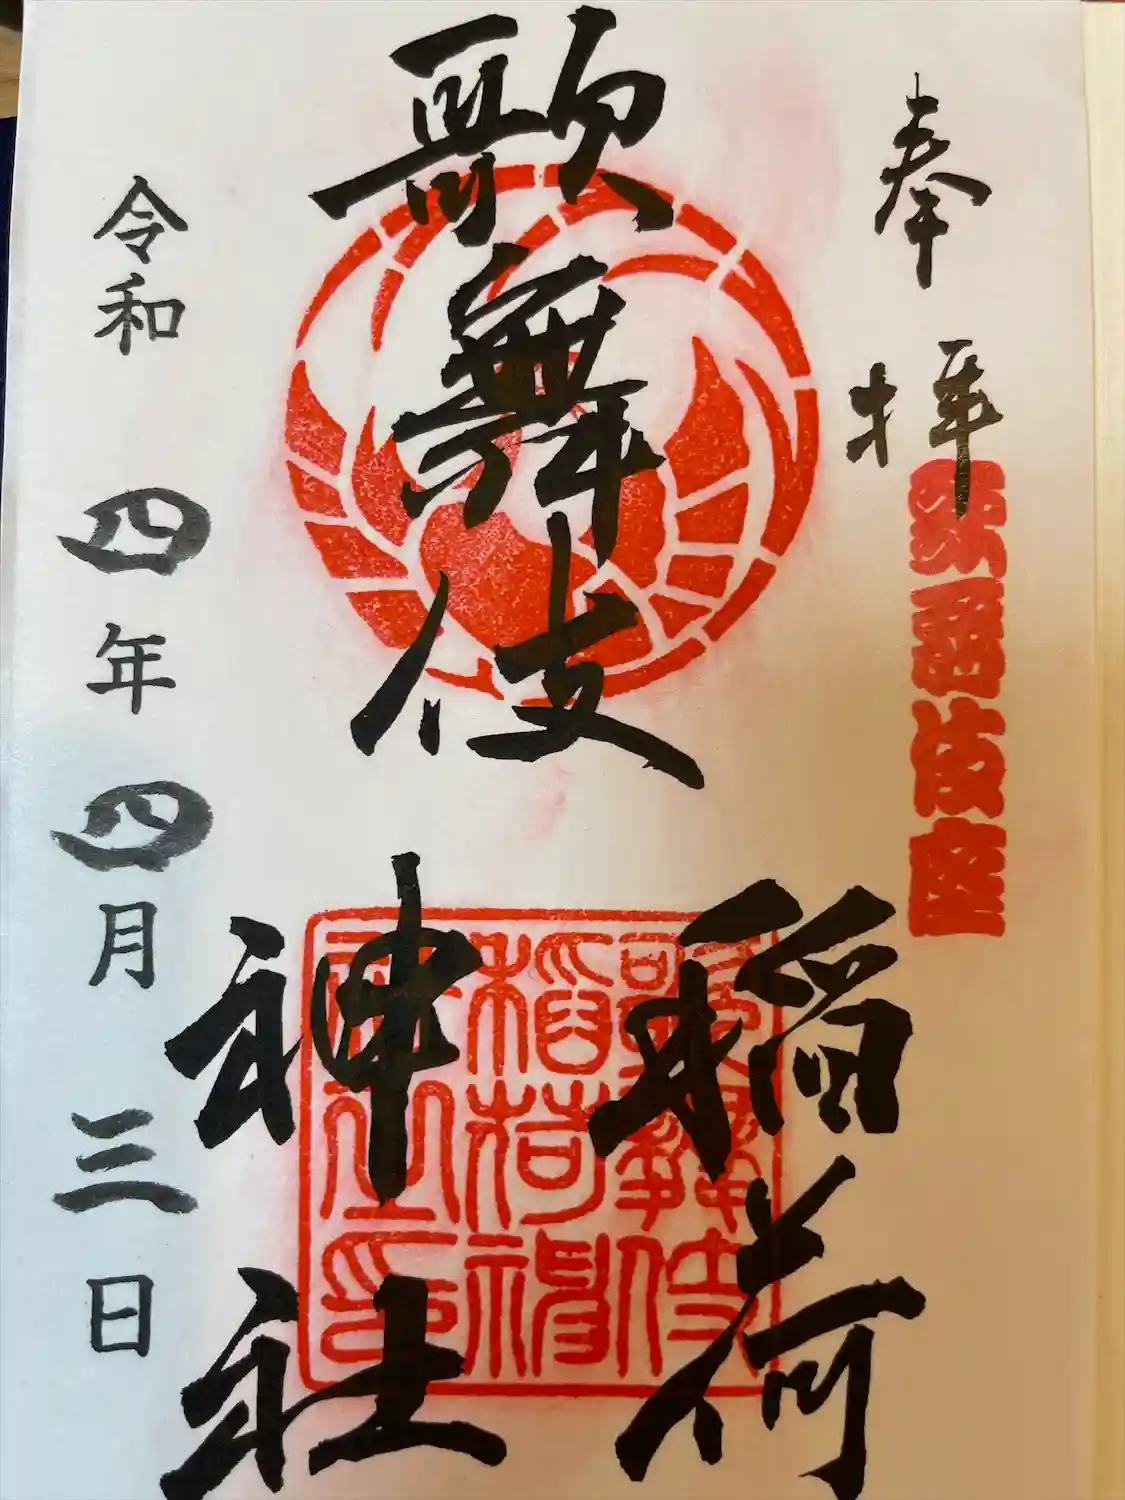 奉拝
歌舞伎座
歌舞伎
稲荷
神社
令和四年四月三日